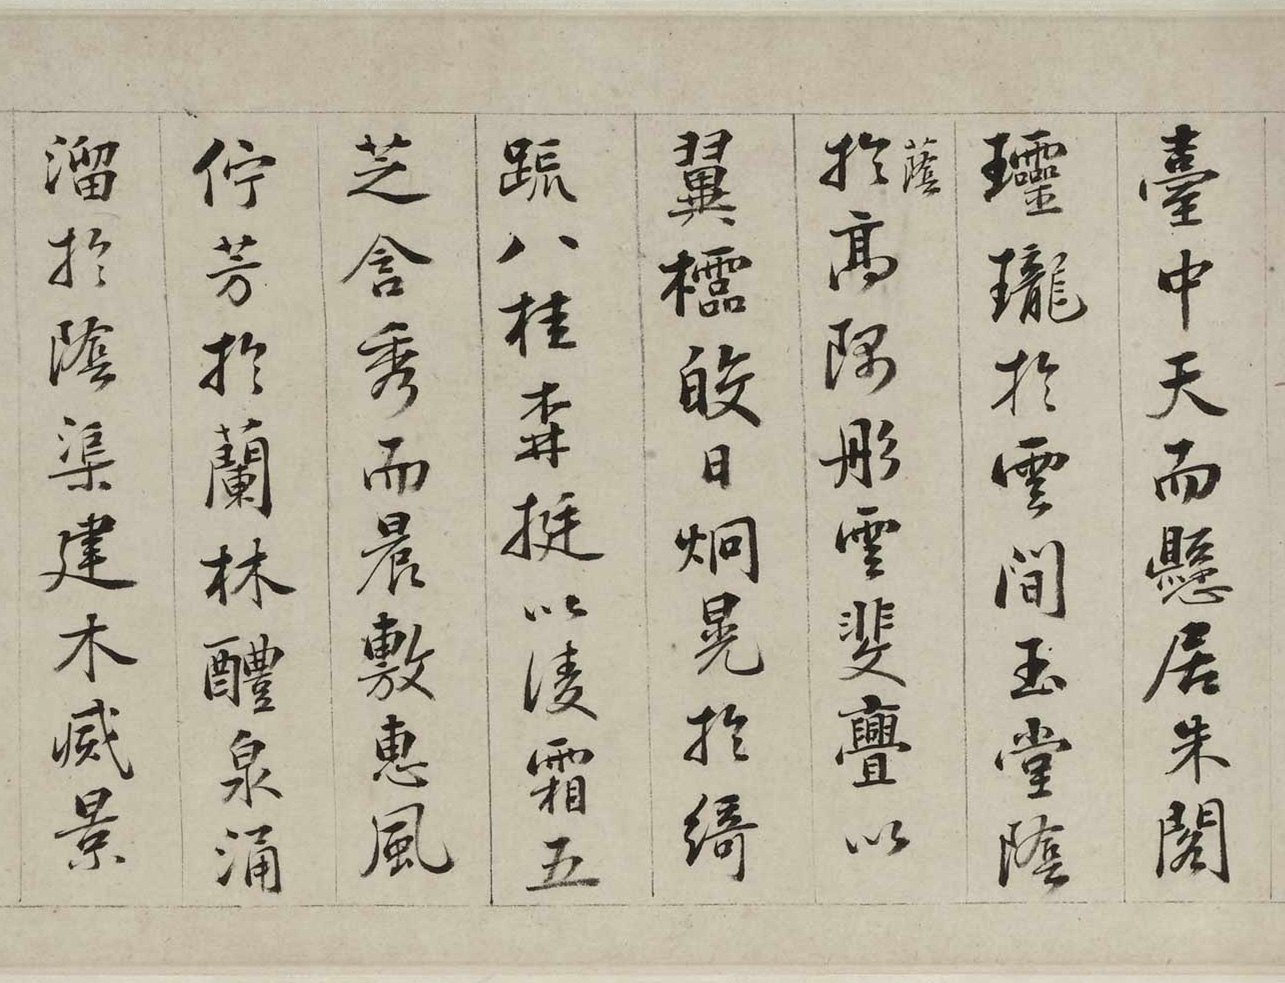 臺中天而懸居朱閣
瓏於雲間玉堂陰
蔭
於高隅彤雲斐亹以
翼櫺皎日炯晃於綺
疏八桂森挺以淩霜五
芝含秀而晨敷惠風
佇芳於蘭林醴泉涌
溜於陰渠建木滅景